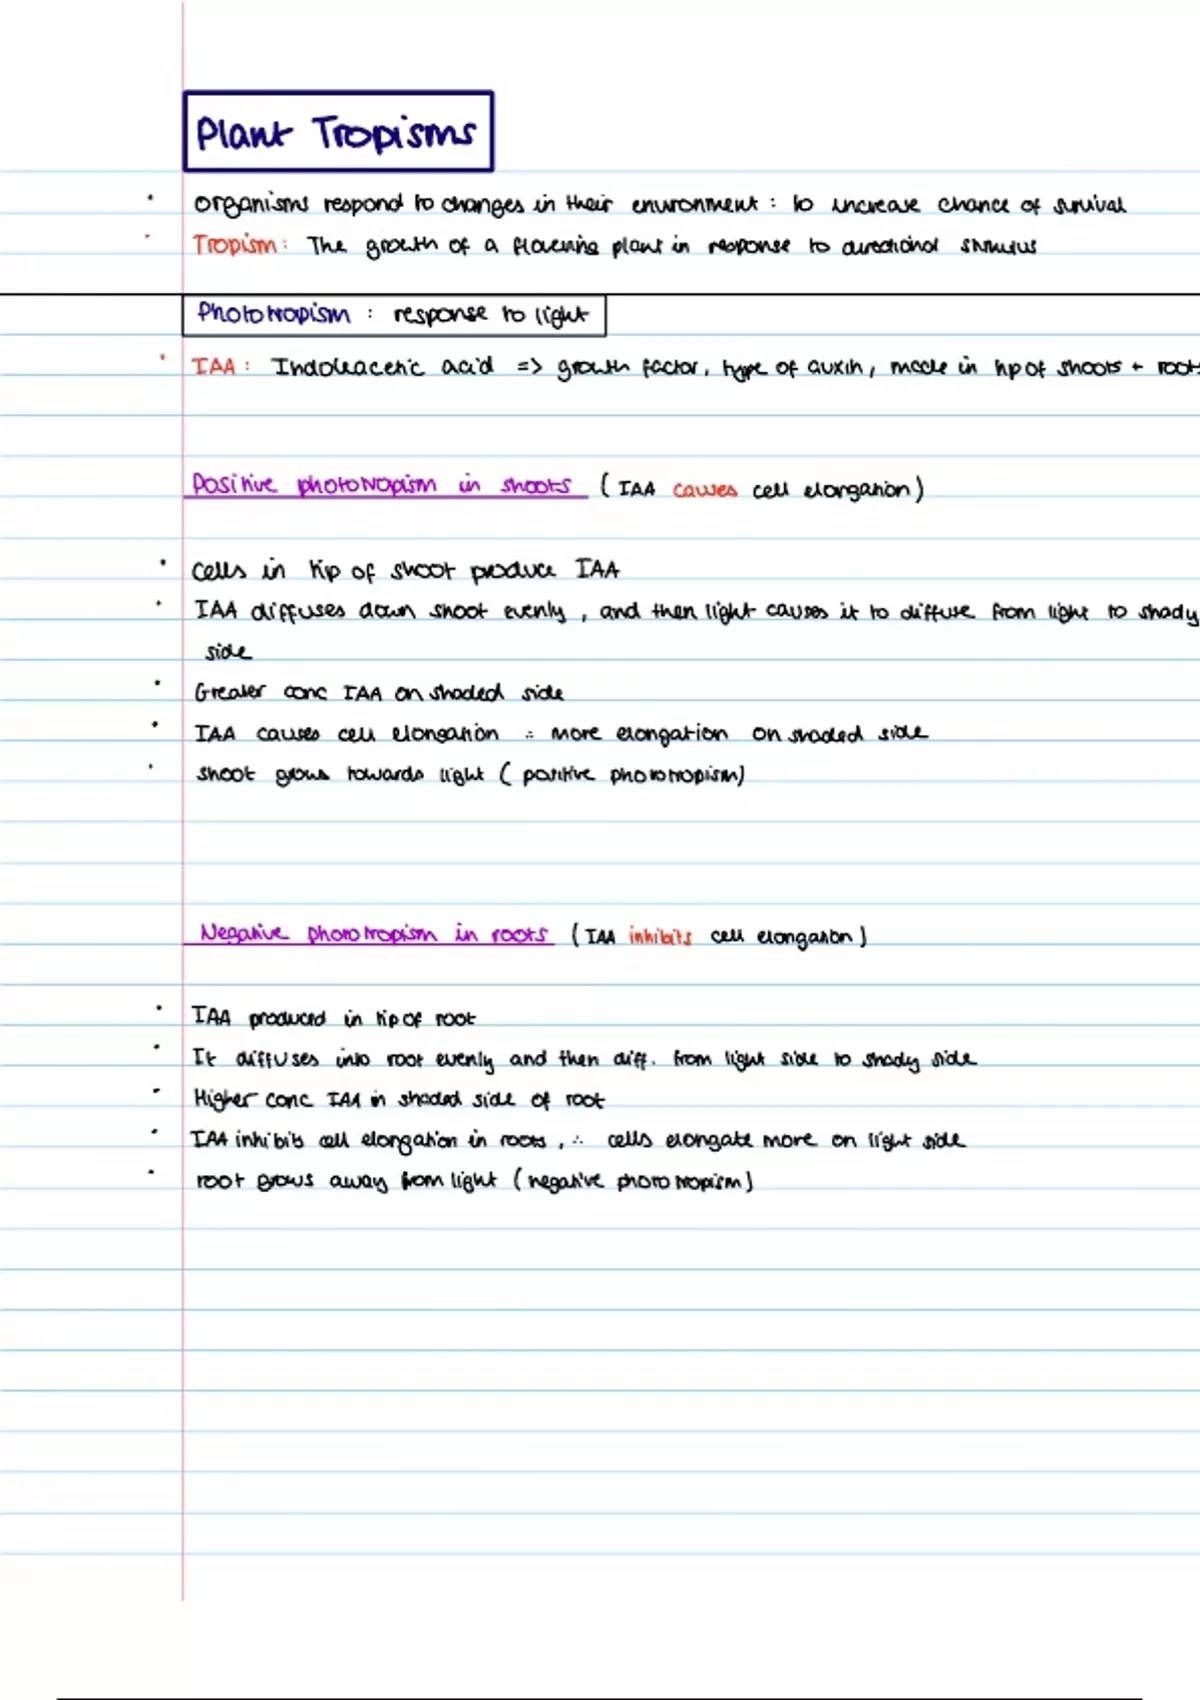 Plant Tropisms
· organisms respond to changes in their environment : to increase chance of survival
· Tropism : The growth of a flowering plant in response to directional stimulus
Phototropism : response to light
· IAA : Indoleacetic acid => growth factor, type of auxin, made in tip of shoots + roots
Positive phototropism in shoots (IAA causes cell elongation)
· cells in tip of shoot produce IAA
· IAA diffuses down shoot evenly, and then light causes it to diffuse from light to shady
side
· Greater conc IAA on shaded side
· IAA causes cell elongation ∴ more elongation on shaded side
· shoot grows towards light (positive phototropism)
Negative phototropism in roots (IAA inhibits cell elongation)
· IAA produced in tip of root
· It diffuses into root evenly and then diff. from light side to shady side
· Higher conc IAA in shaded side of root
· IAA inhibits cell elongation in roots, ∴ cells elongate more on light side
· root grows away from light (negative phototropism)